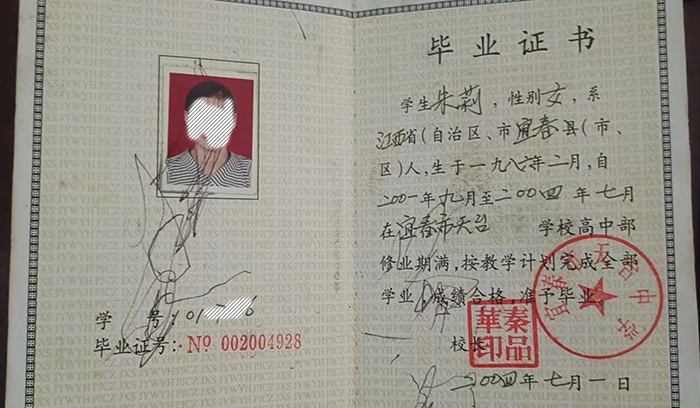 学 号: 01
毕业证号: Nº 002004928
毕业证书
学生朱莉,性别女,系
江西省(自治区、市宜春县(市、
区)人,生于一九八六年二月,自
二00一年九月至二00四年七月
在宜春市天台 学校高中部
修业期满,按教学计划完成全部
学业,成绩合格,准予毕业。
校长
秦品華印
二00四年七月一日